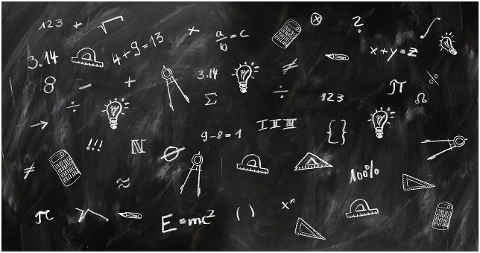 123 + √
3.14
4+9=13
×
a/b = c
⊗
?
∫
x+y=z
8
−
+
3.14
≠
π
%
÷
Σ
÷
123
Ω
→
!!!
ℕ
9-8=1
I II III
{ }
≠
≈
100%
π
√
E=mc²
( )
xⁿ